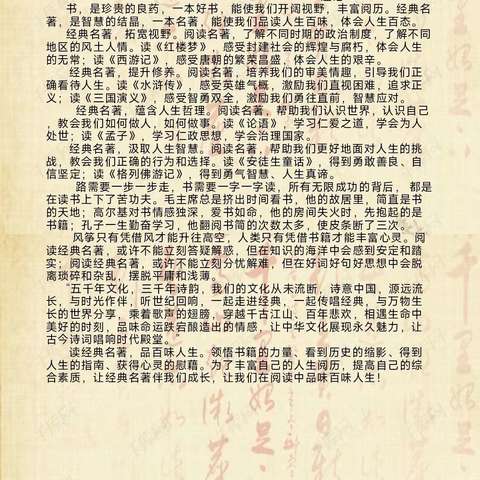 书，是珍贵的良药，一本好书，能使我们开阔视野，丰富阅历。经典名
著，是智慧的结晶，一本名著，能使我们品读人生百味，体会人生百态。
经典名著，拓宽视野。阅读名著，了解不同时期的政治制度，了解不同
地区的风土人情。读《红楼梦》，感受封建社会的辉煌与腐朽，体会人生
的无常；读《西游记》，感受唐朝的繁荣昌盛，体会人生的艰辛。
经典名著，提升修养。阅读名著，培养我们的审美情趣，引导我们正
确看待人生。读《水浒传》，感受英雄气概，激励我们直视困难，追求正
义；读《三国演义》，感受智勇双全，激励我们勇往直前，智慧应对。
经典名著，蕴含人生哲理。阅读名著，帮助我们认识世界，认识自己
，教会我们如何做人，如何做事。读《论语》，学习仁爱之道，学会为人
处世；读《孟子》，学习仁政思想，学会治理国家。
经典名著，汲取人生智慧。阅读名著，帮助我们更好地面对人生的挑
战，教会我们正确的行为和选择。读《安徒生童话》，得到勇敢善良、自
信坚定；读《格列佛游记》，得到勇气智慧、人生真谛。
路需要一步一步走，书需要一字一字读，所有无限成功的背后，都是
在读书上下了苦功夫。毛主席总是挤出时间看书，他的故居里，简直是书
的天地；高尔基对书情感独深，爱书如命，他的房间失火时，先抱起的是
书籍；孔子一生勤奋学习，他翻阅书简的次数太多，使皮条断了三次。
风筝只有凭借风才能升往高空，人类只有凭借书籍才能丰富心灵。阅
读经典名著，或许不能立刻答疑解惑，但在知识的海洋中会感到安定和踏
实；阅读经典名著，或许不能立刻分忧解难，但在好词好句好思想中会脱
离琐碎和杂乱，摆脱平庸和浅薄。
“五千年文化，三千年诗韵，我们的文化从未流断，诗意中国，源远流
长，与时光作伴，听世纪回响，一起走进经典，一起传唱经典，与万物生
长的世界分享，乘着歌声的翅膀，穿越千古江山、百年悲欢，相遇生命中
美好的时刻，品味命运跌宕酿造出的情感，让中华文化展现永久魅力，让
古今诗词唱响时代殿堂。”
读经典名著，品百味人生。领悟书籍的力量、看到历史的缩影、得到
人生的指南、获得心灵的慰藉。为了丰富自己的人生阅历，提高自己的综
合素质，让经典名著伴我们成长，让我们在阅读中品味百味人生！